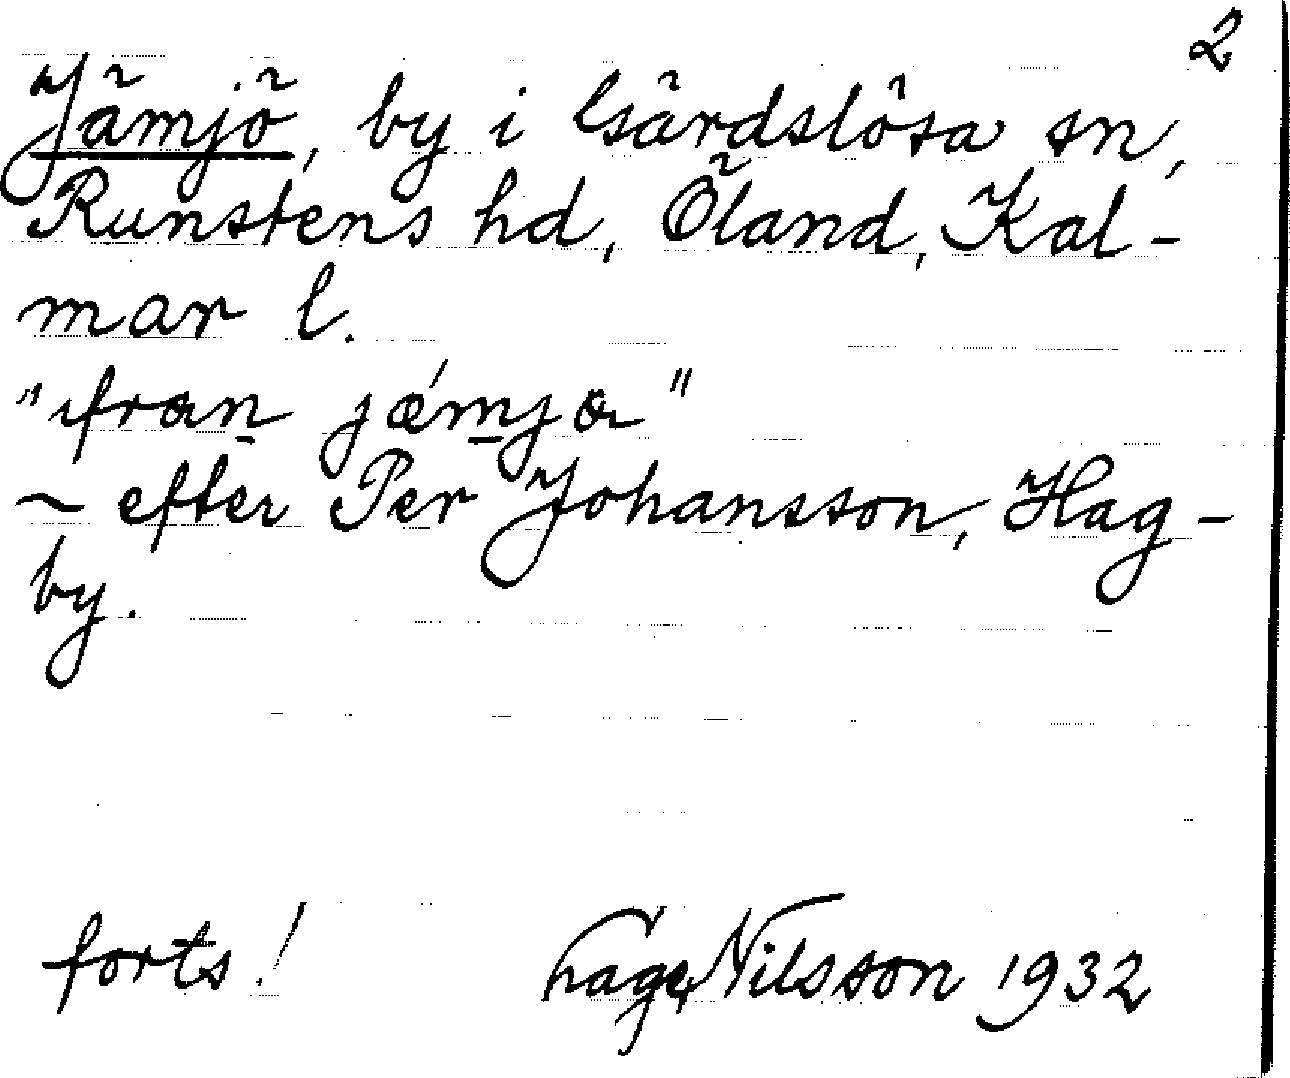 2
Jämjö, by i Gärdslösa sn,
Runstens hd, Öland, Kal-
mar l.
"ifran jæ´mjɷ"
~ efter Per Johansson, Hag-
by.
forts! Nilsson 1932